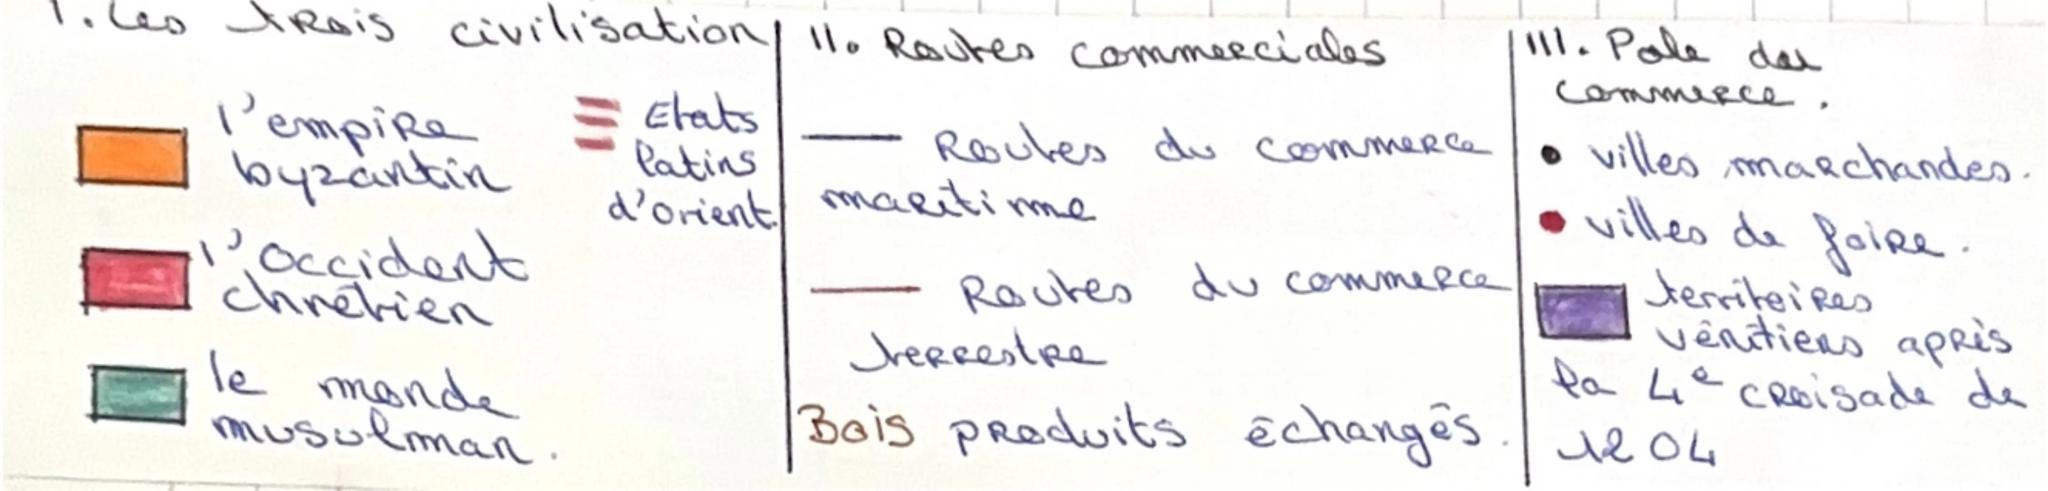 I. Les trois civilisation
l'empire
byzantin
Etats
latins
d'orient
l'Occident
chrétien
le monde
musulman.
II. Routes commerciales
Routes du commerce
maritime
Routes du commerce
terrestre
Bois produits échangés.
III. Pole du
commerce.
villes marchandes.
villes de foire.
territoires
vénitiens après
la 4e croisade de
1204